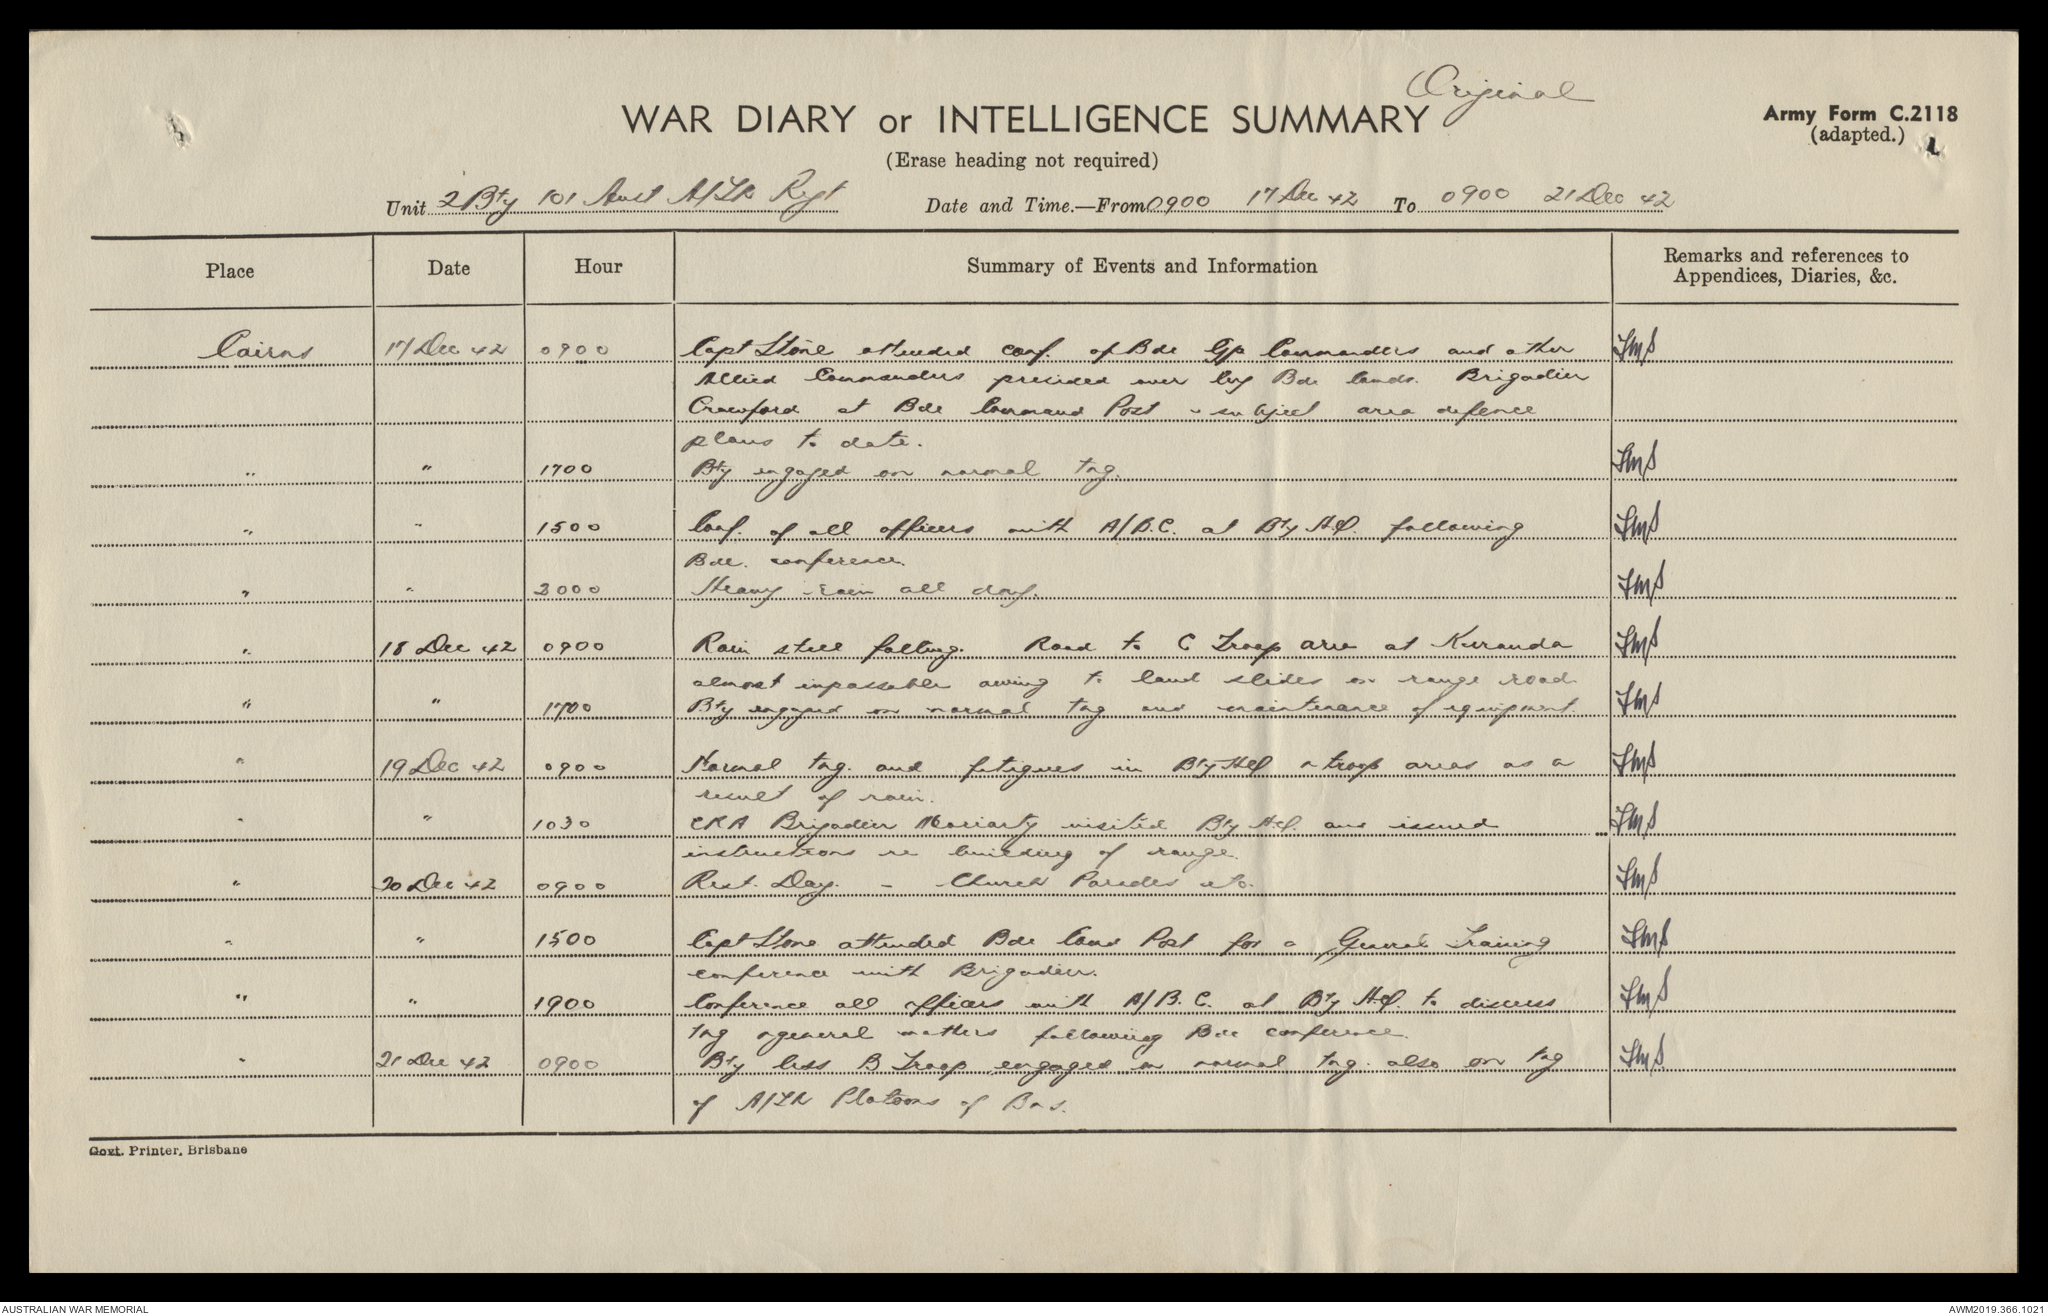 Original
WAR DIARY or INTELLIGENCE SUMMARY
Army Form C.2118
(adapted.)
(Erase heading not required)
Unit 2 Bty 101 Aust A/Tk Rgt Date and Time.—From 0900 17 Dec 42 To 0900 21 Dec 42
Place Date Hour Summary of Events and Information Remarks and references to
Appendices, Diaries, &c.
Cairns 17 Dec 42 0900 Capt Stone attended conf. of Bde Gp Commanders and other
Allied Commanders presided over by Bde Comdr. Brigadier
Crawford at Bde Command Post - subject area defence
plans to date.
" " 1700 Bty engaged on normal tng.
" " 1500 Conf. of all officers with A/B.C. at Bty H.Q. following
Bde. conference.
" " 2000 Heavy rain all day.
" 18 Dec 42 0900 Rain still falling. Road to C Troop area at Kuranda
almost impassable owing to land slides on range road.
" " 1700 Bty engaged on normal tng and maintenance of equipment.
" 19 Dec 42 0900 Normal tng. and fatigues in Bty HQ & troop areas as a
result of rain.
" " 1030 CRA Brigadier Moriarty visited Bty H.Q. and issued
instructions re building of range.
" 20 Dec 42 0900 Rest Day. - Church Parades etc.
" " 1500 Capt Stone attended Bde Comd Post for a General Training
conference with Brigadier.
" " 1900 Conference all officers with A/B.C. at Bty H.Q. to discuss
tng & general matters following Bde conference.
" 21 Dec 42 0900 Bty less B Troop engaged on normal tng. also on tng
of A/Tk Platoons of Bns.
Govt. Printer, Brisbane
AUSTRALIAN WAR MEMORIAL
AWM2019.366.1021